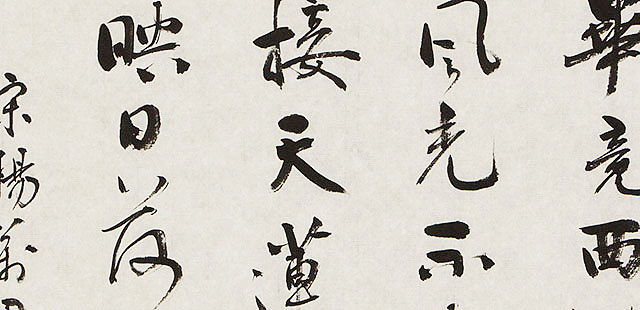 畢竟西
风光不
接天蓮
映日荷
宋楊萬